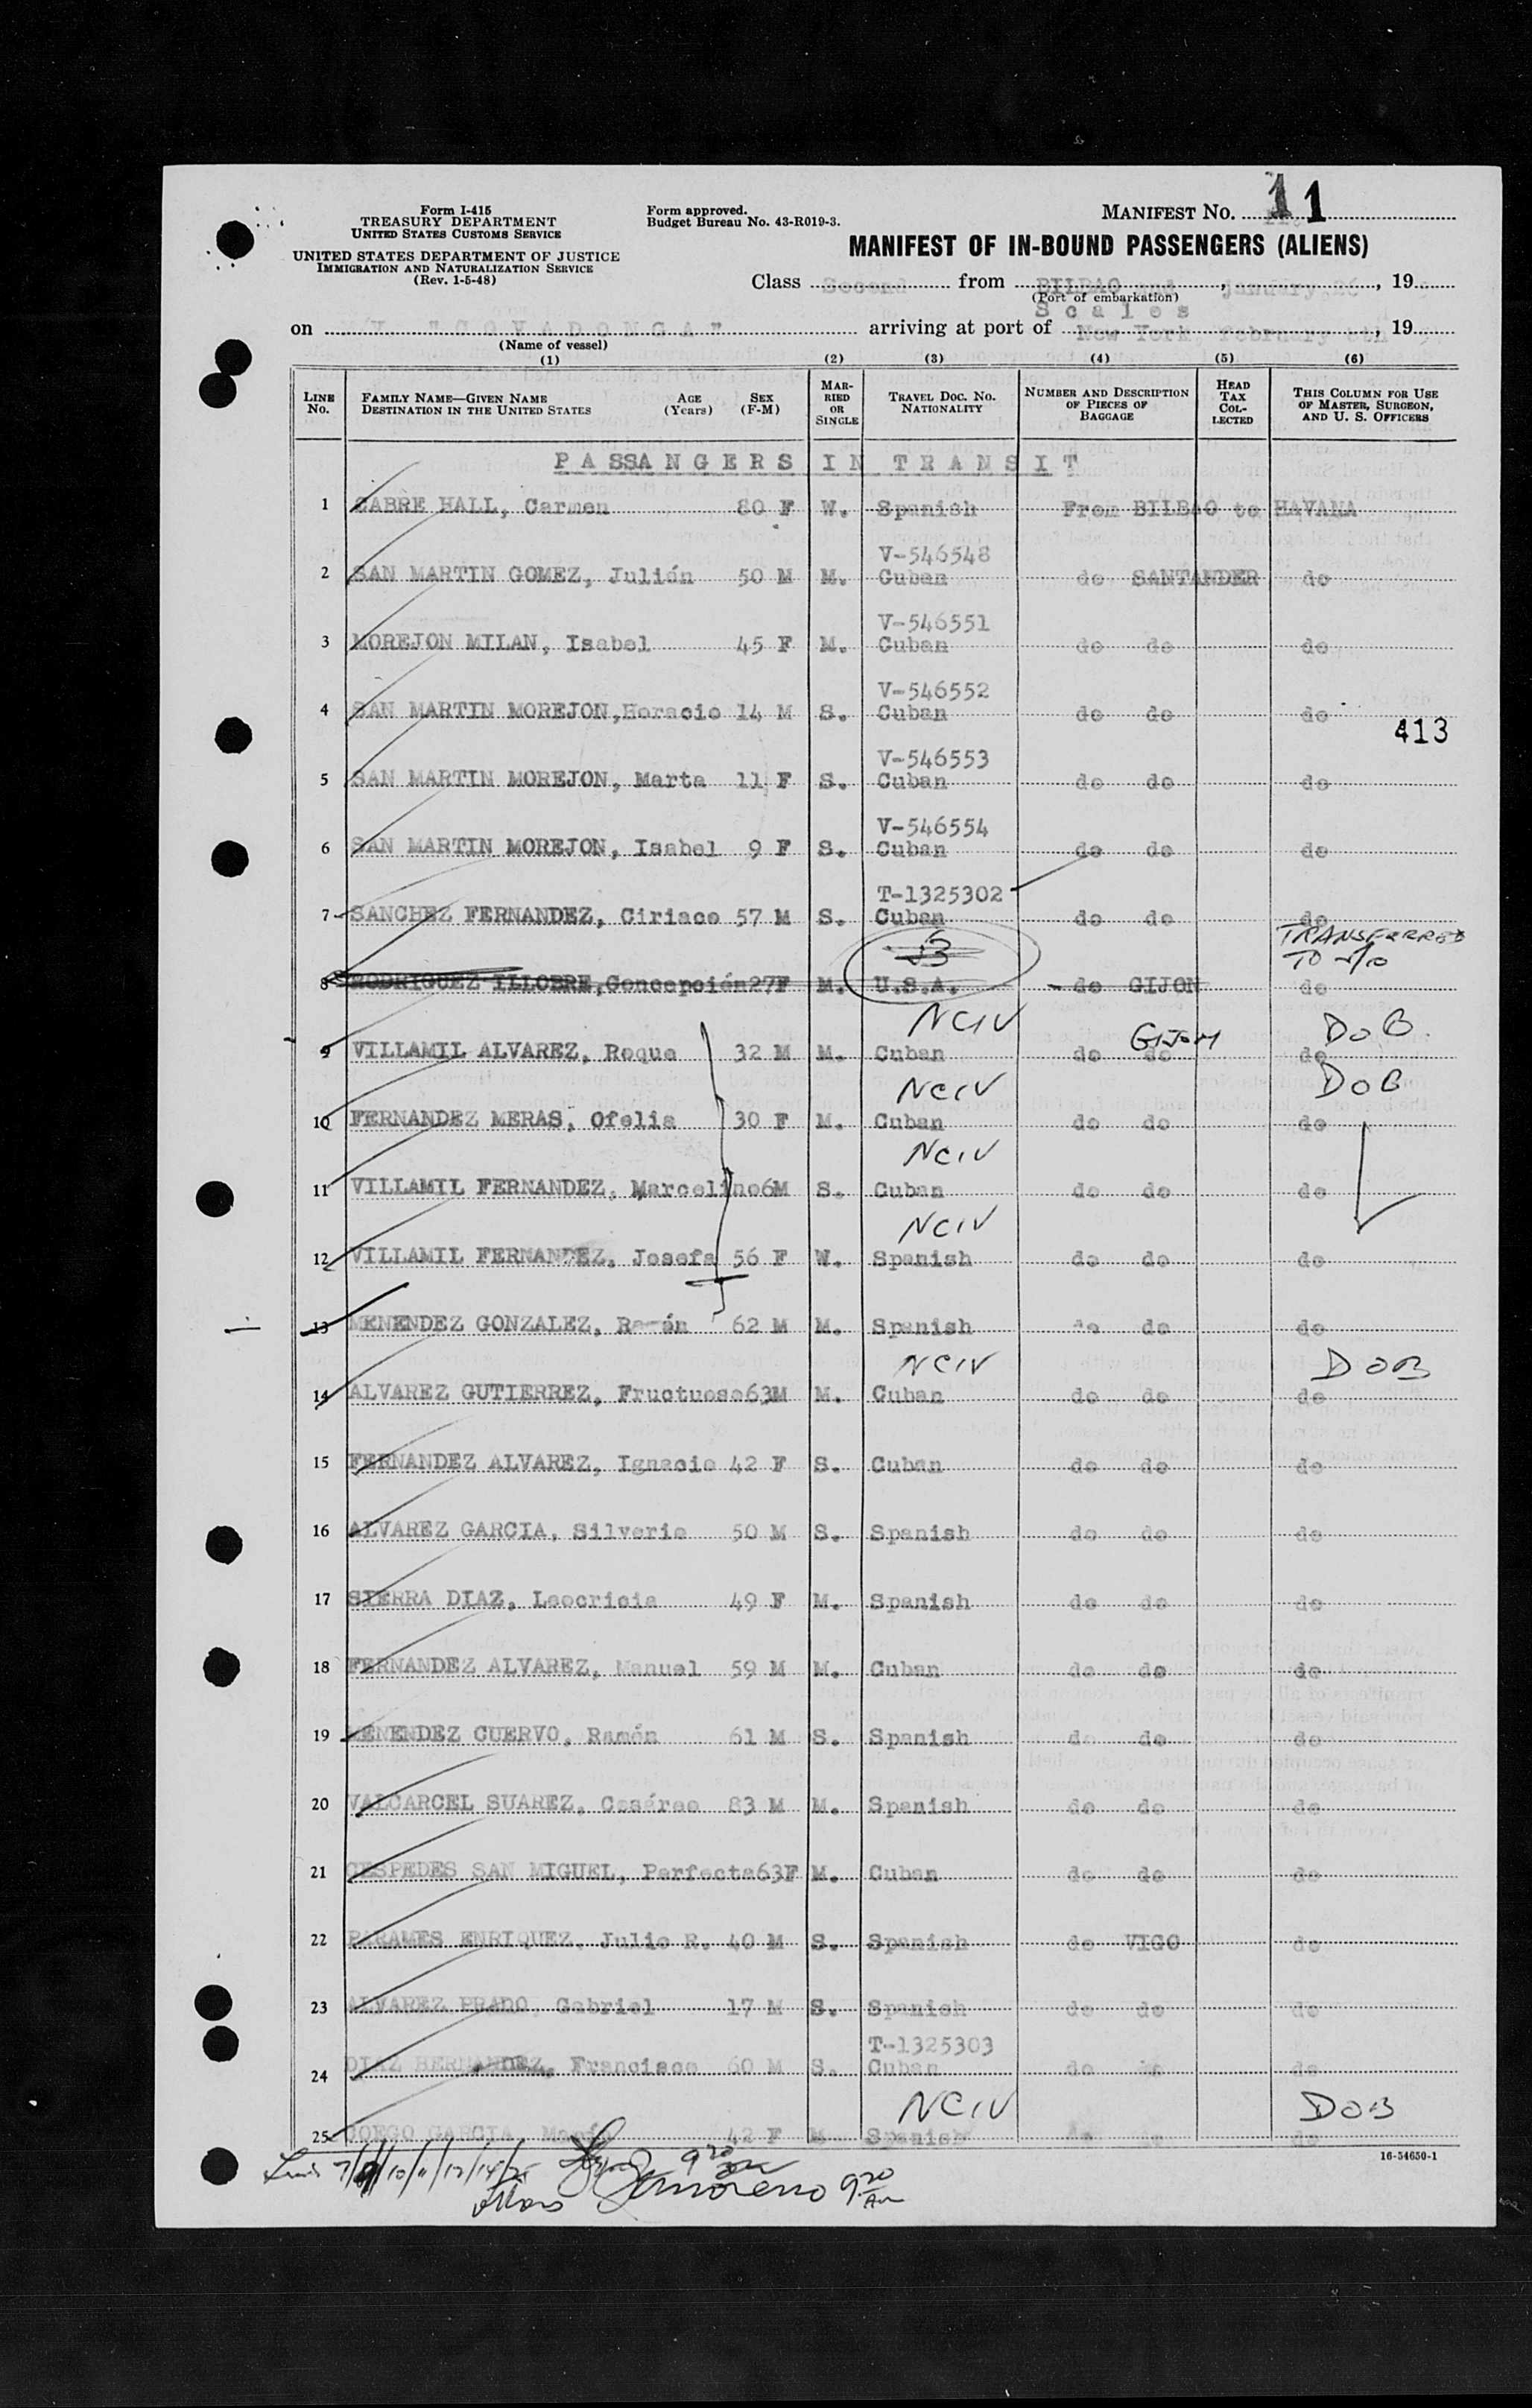 Form I-415
TREASURY DEPARTMENT
UNITED STATES CUSTOMS SERVICE
UNITED STATES DEPARTMENT OF JUSTICE
IMMIGRATION AND NATURALIZATION SERVICE
(Rev. 1-5-48)
Form approved.
Budget Bureau No. 43-R019-3.
MANIFEST No. 11
MANIFEST OF IN-BOUND PASSENGERS (ALIENS)
Class Second from BILBAO and, January, 26, 19
(Port of embarkation)
Scales
on "COVADONGA" arriving at port of New York, February, 19
(Name of vessel)
(1) (2) (3) (4) (5) (6)
LINE No. FAMILY NAME—GIVEN NAME DESTINATION IN THE UNITED STATES AGE (Years) SEX (F-M) MARRIED OR SINGLE TRAVEL DOC. NO. NATIONALITY NUMBER AND DESCRIPTION OF PIECES OF BAGGAGE HEAD TAX COLLECTED THIS COLUMN FOR USE OF MASTER, SURGEON, AND U. S. OFFICERS
PASSANGERS IN TRANSIT
1 SABRE HALL, Carmen 80 F W. Spanish From BILBAO to HAVANA
V-546548
2 SAN MARTIN GOMEZ, Julián 50 M M. Cuban do SANTANDER do
V-546551
3 MOREJON MILAN, Isabel 45 F M. Cuban do do do
V-546552
4 SAN MARTIN MOREJON, Horacio 14 M S. Cuban do do do
413
V-546553
5 SAN MARTIN MOREJON, Marta 11 F S. Cuban do do do
V-546554
6 SAN MARTIN MOREJON, Isabel 9 F S. Cuban do do do
T-1325302
7 SANCHEZ FERNANDEZ, Ciriaco 57 M S. Cuban do do do
TRANSFERRED
TO
8 RODRIGUEZ ILLOBRE, Concepción 27 F M. U.S.A. do GIJON do
NCIV DOB.
9 VILLAMIL ALVAREZ, Roque 32 M M. Cuban do do GIJON do
NCIV DOB
10 FERNANDEZ MERAS, Ofelia 30 F M. Cuban do do do
NCIV
11 VILLAMIL FERNANDEZ, Marcelino 6 M S. Cuban do do do
NCIV
12 VILLAMIL FERNANDEZ, Josefa 56 F W. Spanish do do do
13 MENENDEZ GONZALEZ, Ramón 62 M M. Spanish do do do
NCIV DOB
14 ALVAREZ GUTIERREZ, Fructuoso 63 M M. Cuban do do do
15 FERNANDEZ ALVAREZ, Ignacio 42 F S. Cuban do do do
16 ALVAREZ GARCIA, Silverio 50 M S. Spanish do do do
17 SIERRA DIAZ, Leocricia 49 F M. Spanish do do do
18 FERNANDEZ ALVAREZ, Manuel 59 M M. Cuban do do do
19 MENENDEZ CUERVO, Ramón 61 M S. Spanish do do do
20 VALCARCEL SUAREZ, Cesáreo 83 M M. Spanish do do do
21 CESPEDES SAN MIGUEL, Perfecta 63 F M. Cuban do do do
22 PARAMES ENRIQUEZ, Julio R. 40 M S. Spanish do VIGO do
23 ALVAREZ PRADO, Gabriel 17 M S. Spanish do do do
T-1325303
24 DIAZ HERNANDEZ, Francisco 60 M S. Cuban do do do
NCIV DOB
25 GARCIA, 42 F M Spanish do do do
16-54650-1
9 20
9 20 Am